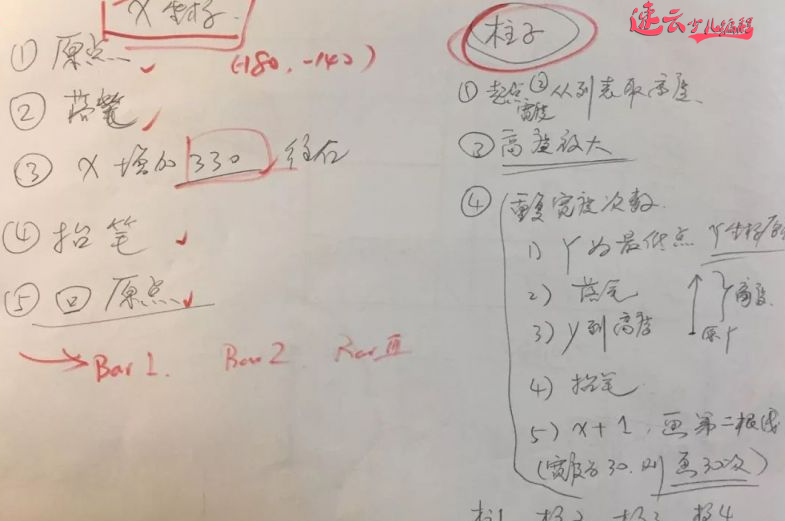 X 坐标
① 原点 (-180, -140)
② 落笔
③ X 增加 330 往右
④ 抬笔
⑤ 回原点
→ Bar 1. Bar 2 Bar III
速云少儿编程
柱子
① 起点 ② 从列表取高度、
宽度
③ 高度放大
④ 重复宽度次数.
1) Y为最低点 Y坐标原
2) 落笔
3) y到高度
高度
原Y
4) 抬笔
5) x+1, 画第二根线
(宽度为30. 则画30次)
柱1 柱2 柱3 柱4